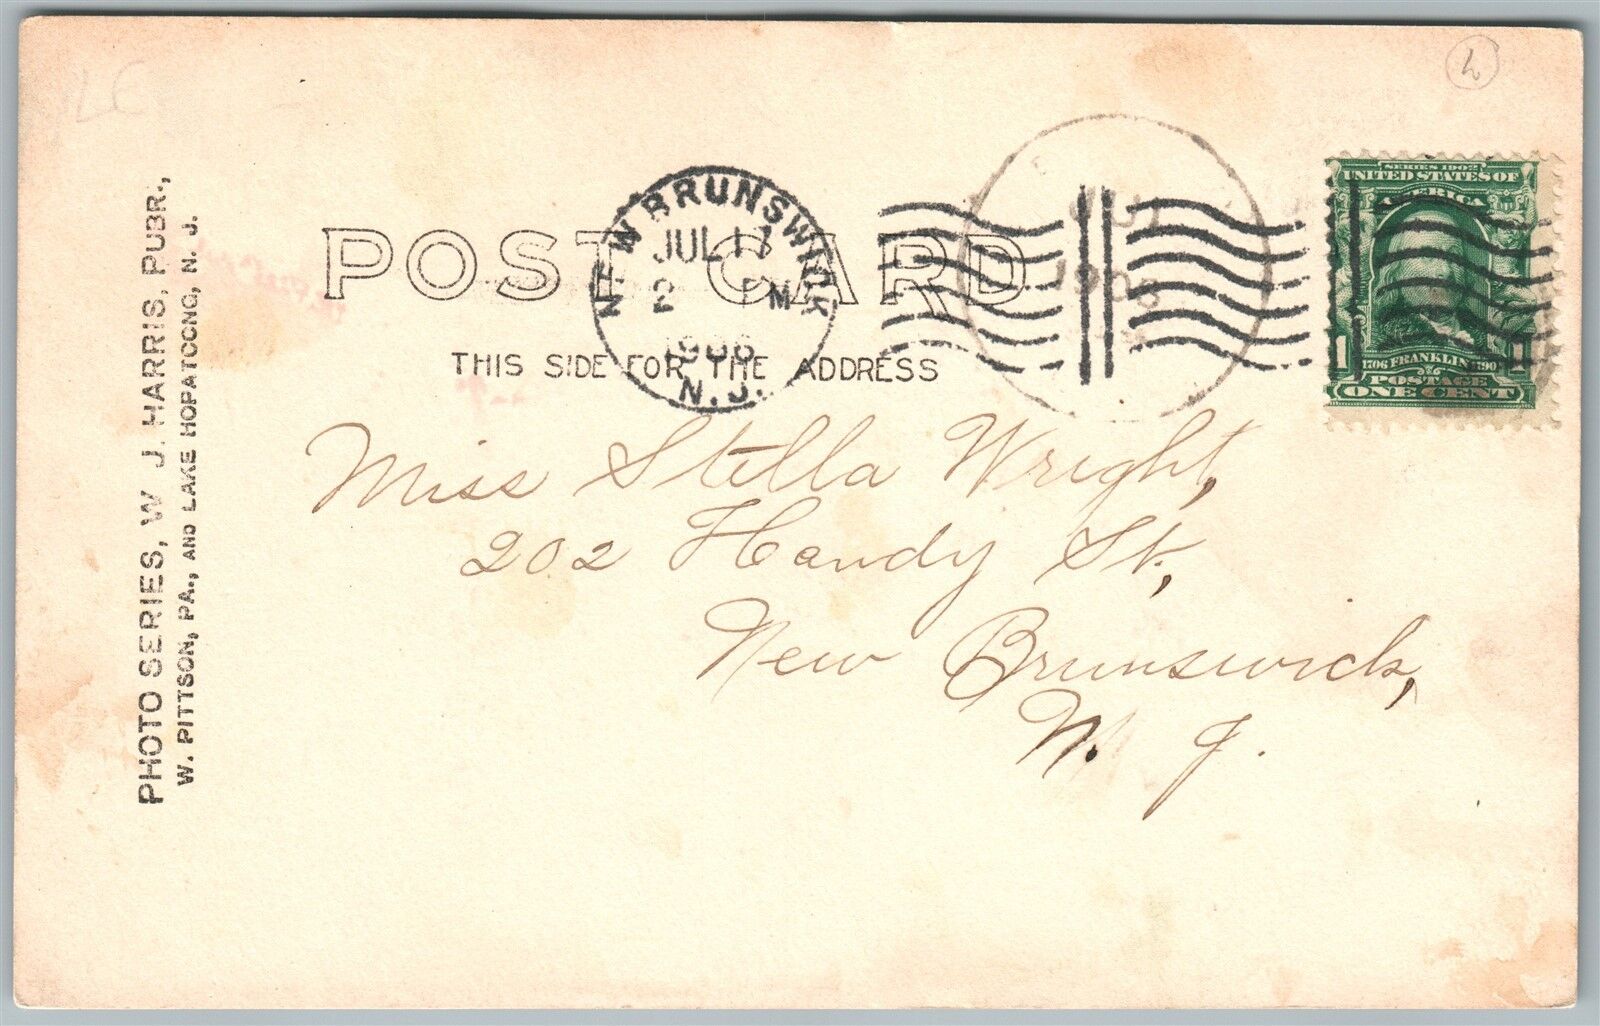 PHOTO SERIES, W. J. HARRIS, PUBR.,
W. PITTSON, PA., AND LAKE HOPATCONG, N. J.
POST CARD
THIS SIDE FOR THE ADDRESS
NEW BRUNSWICK
JUL 17
2 PM
1906
N.J.
1906
SERIES 1902
UNITED STATES OF
AMERICA
1706 FRANKLIN 1790
1 1
POSTAGE
ONE CENT
Miss Stella Wright,
202 Handy St.,
New Brunswick,
N. J.